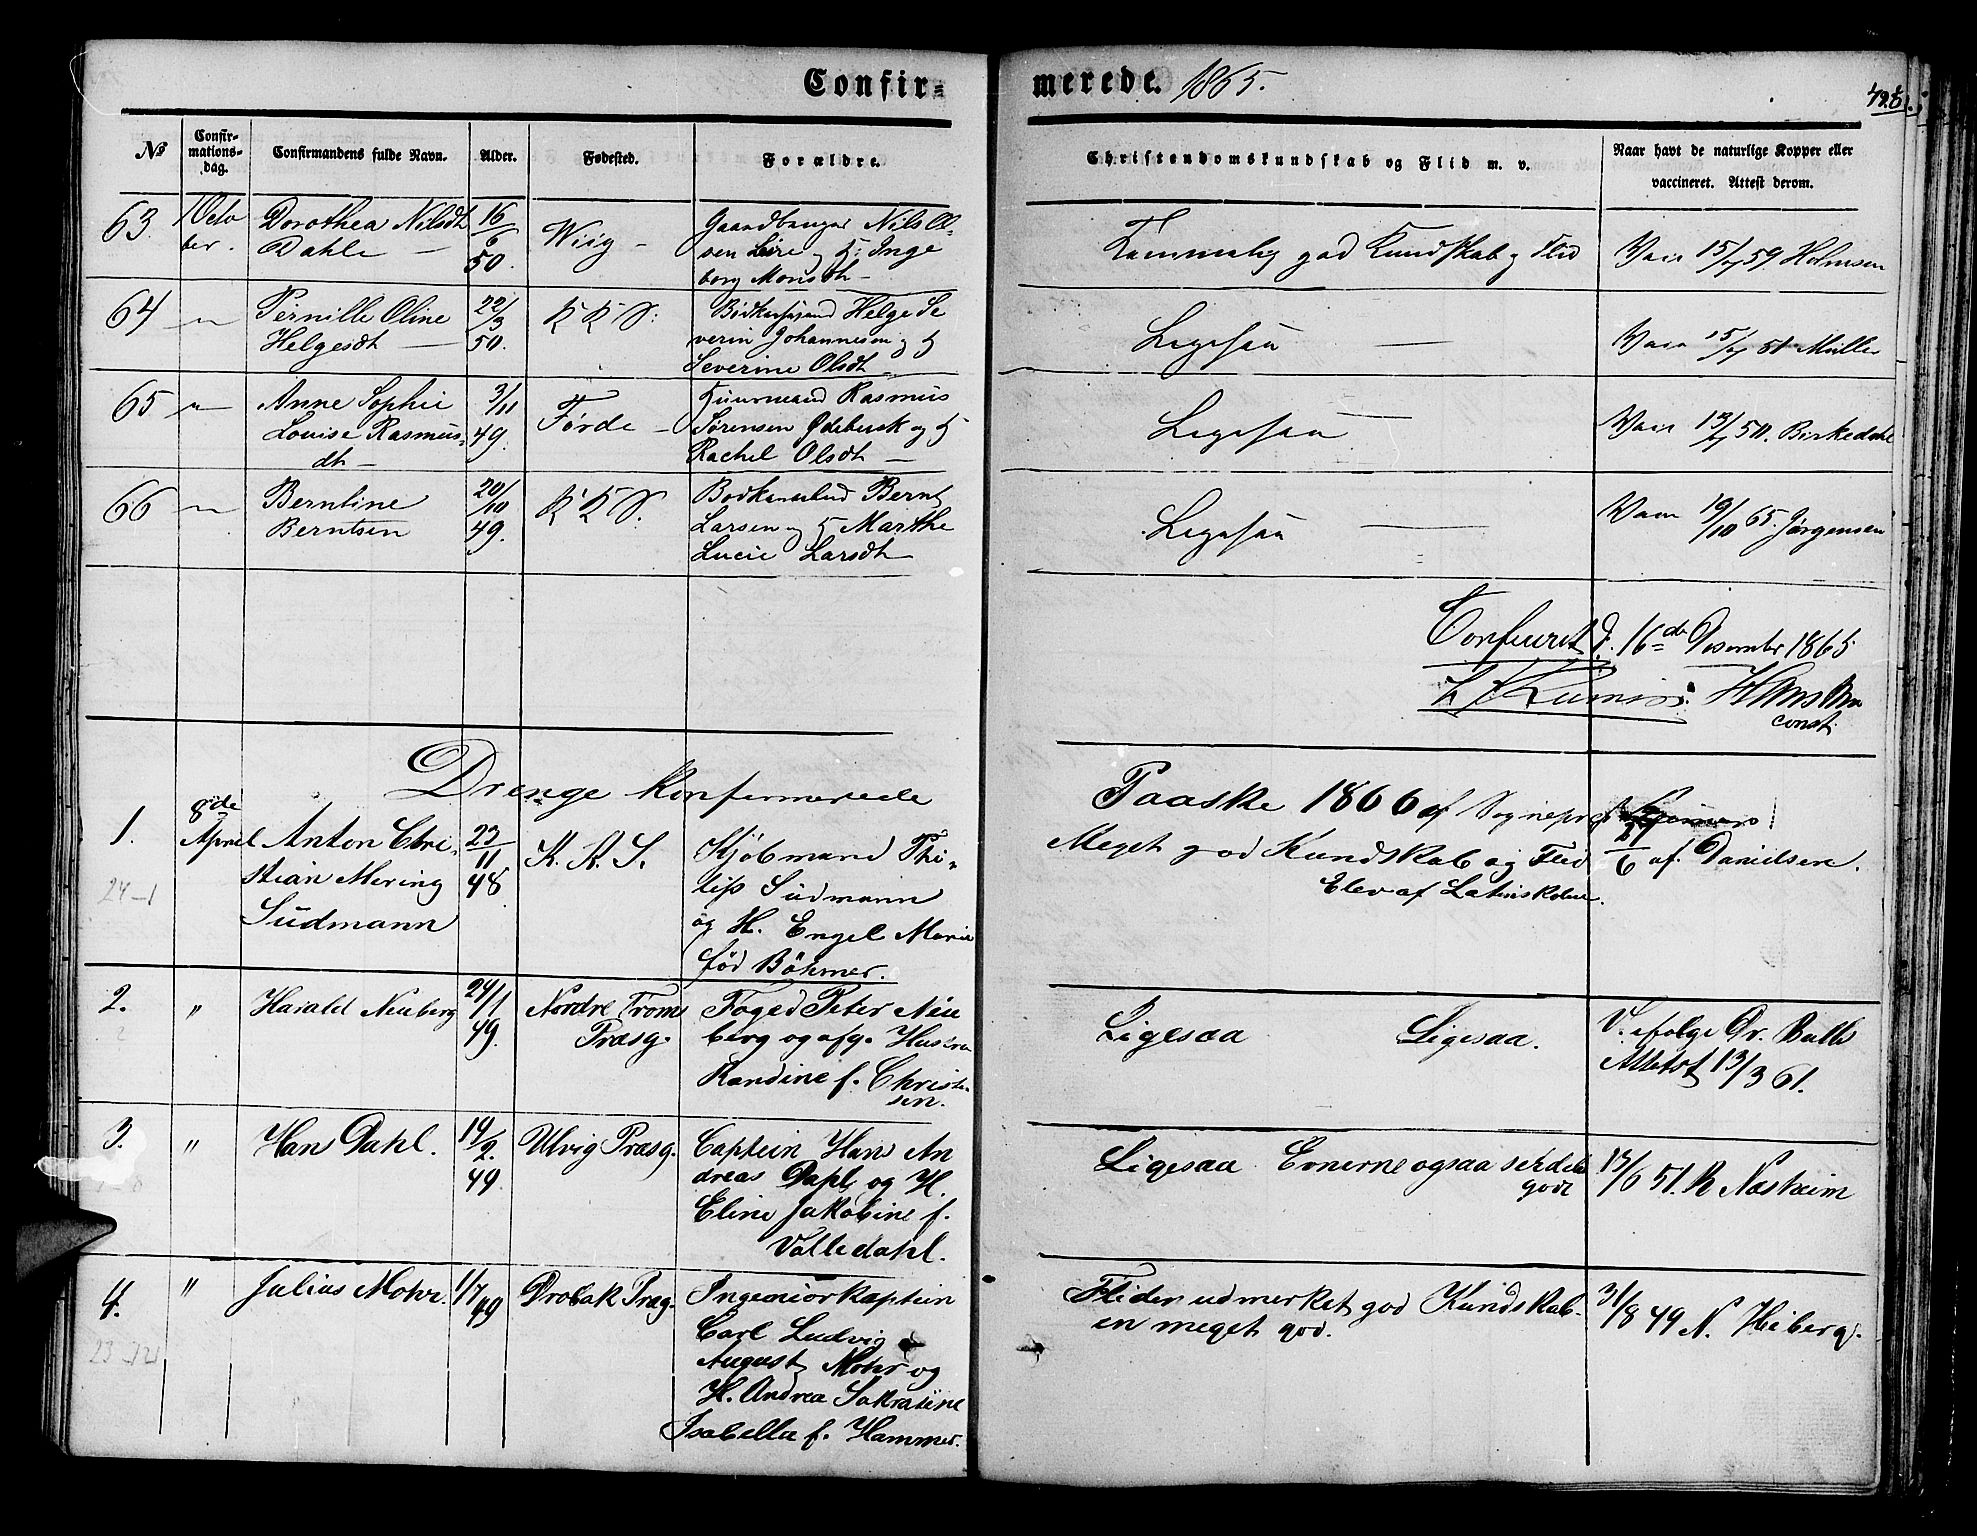 Confir-
merede. 1865.
No
Confir-
mations-
dag.
Confirmandens fulde Navn.
Alder.
Fødested.
Forældre.
Christendomskundskab og Flid m. v.
Naar havt de naturlige Kopper eller
vaccineret. Attest derom.
63. Octo
ber.
Dorothea Nilsdt
Dahle
16/6
50.
Wiig
Gaardbruger Nils Ol-
sen Leire og H: Inge
borg Monsdt
Temmelig god Kundskab og Flid
Vacc 15/7 59 Holmsen
64
Pernille Oline
Helgesdt
22/3
50.
K K S:
Bødkersvend Helge Se
verin Johannesen og H
Severine Olsdt
Ligesaa
Vacc 15/7 51 Müller
65
Anne Sophie
Louise Rasmus-
dt
3/11
49.
Førde
Rasmus
Sørensen og H
Rachel Olsdt
Ligesaa
Vacc 13/7 50. Birkedahl
66
Berntine
Berntsen
20/10
49.
K K S:
Bernt
Larsen og H Marthe
Lucie Larsdt
Ligesaa
Vacc 19/10 65. Jørgensen
Confereret d. 16de December 1865
const.
Drenge Konfirmerede
Paaske 1866 af Sognepr
1.
8de
April
Anton Chri-
stian Mering
Südmann
23/11
48
K. K. S.
Kjøbmand Phi-
lip Südmann
og H. Engel Marie
fød Böhmer.
Meget god Kundskab og Flid
Elev af Latinskolen.
af Danielsen.
24-1
2. "
Harald Neuberg
24/1
49.
Nordre Troms
Præsg.
Foged Peter Neu
berg og afg. Hustru
Randine f. Christen-
sen.
Ligesaa Ligesaa.
V. ifølge Dr. Bulls
Attest 13/3 61.
3. "
Han Dahl.
19/2.
49.
Ulvig Præsg.
Captein Han An
dreas Dahl og H.
Eline Jakobine f.
Valledahl.
Ligesaa Evnerne ogsaa serdeles
gode
13/6 51. R Næsheim
4. "
Julius Mohr.
1/7 49
Drobak Præg.
Ingeniørkaptein
Carl Ludvig
August Mohr og
H. Andrea Sakratine
Isabella f. Hammer.
Fliden udmerket god Kundskab-
en meget god.
3/8 49 N. Heiberg.
23-12